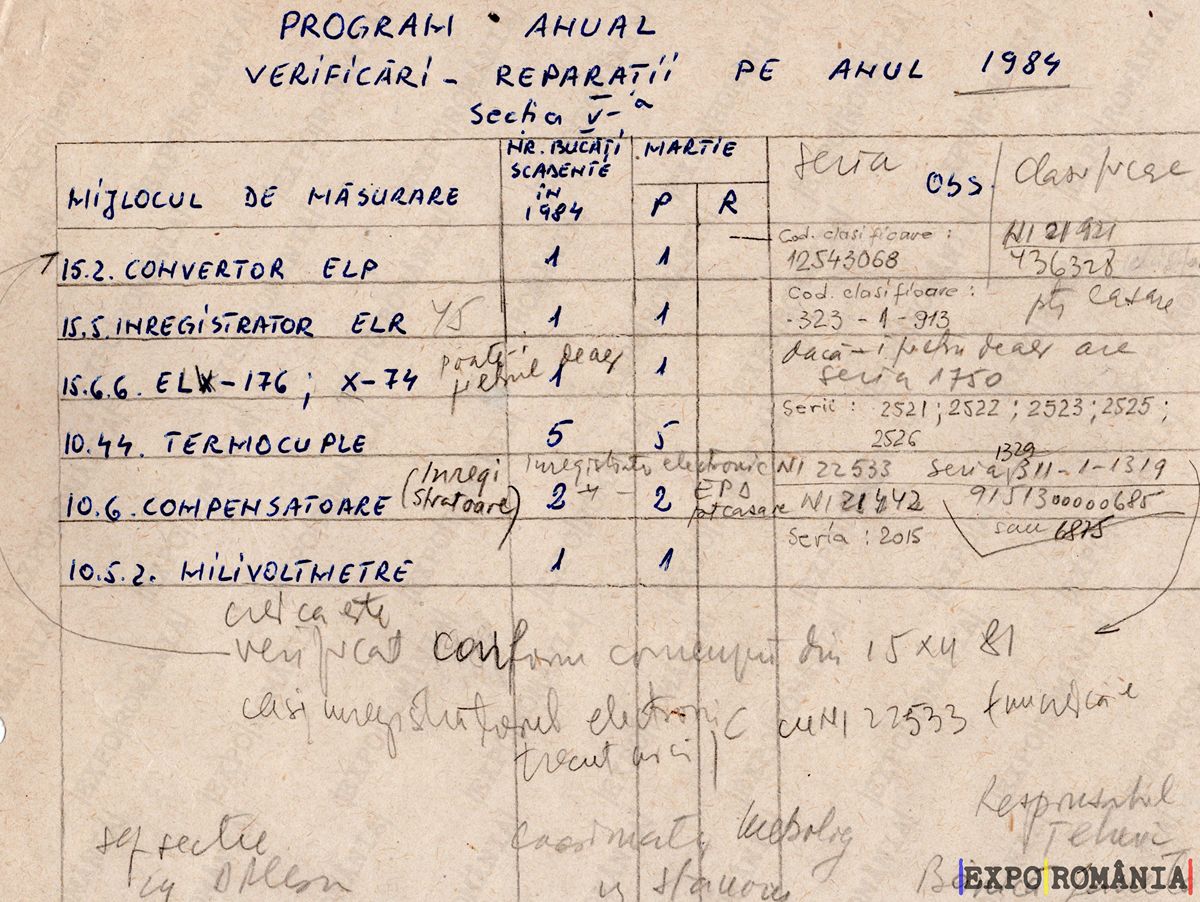 PROGRAM ANUAL
VERIFICĂRI - REPARAȚII PE ANUL 1984
Secția V-a
MIJLOCUL DE MĂSURARE
NR. BUCĂȚI
SCADENTE
ÎN
1984
MARTIE
P R
Seria
OBS.
Clasificare
15.2. CONVERTOR ELP 1 1
Cod. clasificare :
12543068
NI 21921
436328
15.5. INREGISTRATOR ELR 45 1 1
Cod. clasificare :
-323 - 1 - 913
ptș casare
15.6.6. ELX - 176 ; X - 74 1 1
dacă-i
are
seria 1750
10.44. TERMOCUPLE 5 5
Serii : 2521 ; 2522 ; 2523 ; 2525 ;
2526
10.6. COMPENSATOARE (Inregi
stratoare) 2 2
inregistrator electronic
EPD
pt casare
NI 22533 Seria 311-1-1319
1329
NI 21442 9151300000685
sau 6875
10.5.2. MILIVOLTMETRE 1 1
Seria : 2015
este
verificat conform din 15 XII 81
electronic cu NI 22533
trecut aici
șef secție
metrolog
Responsabil
Tehnic
EXPO ROMÂNIA